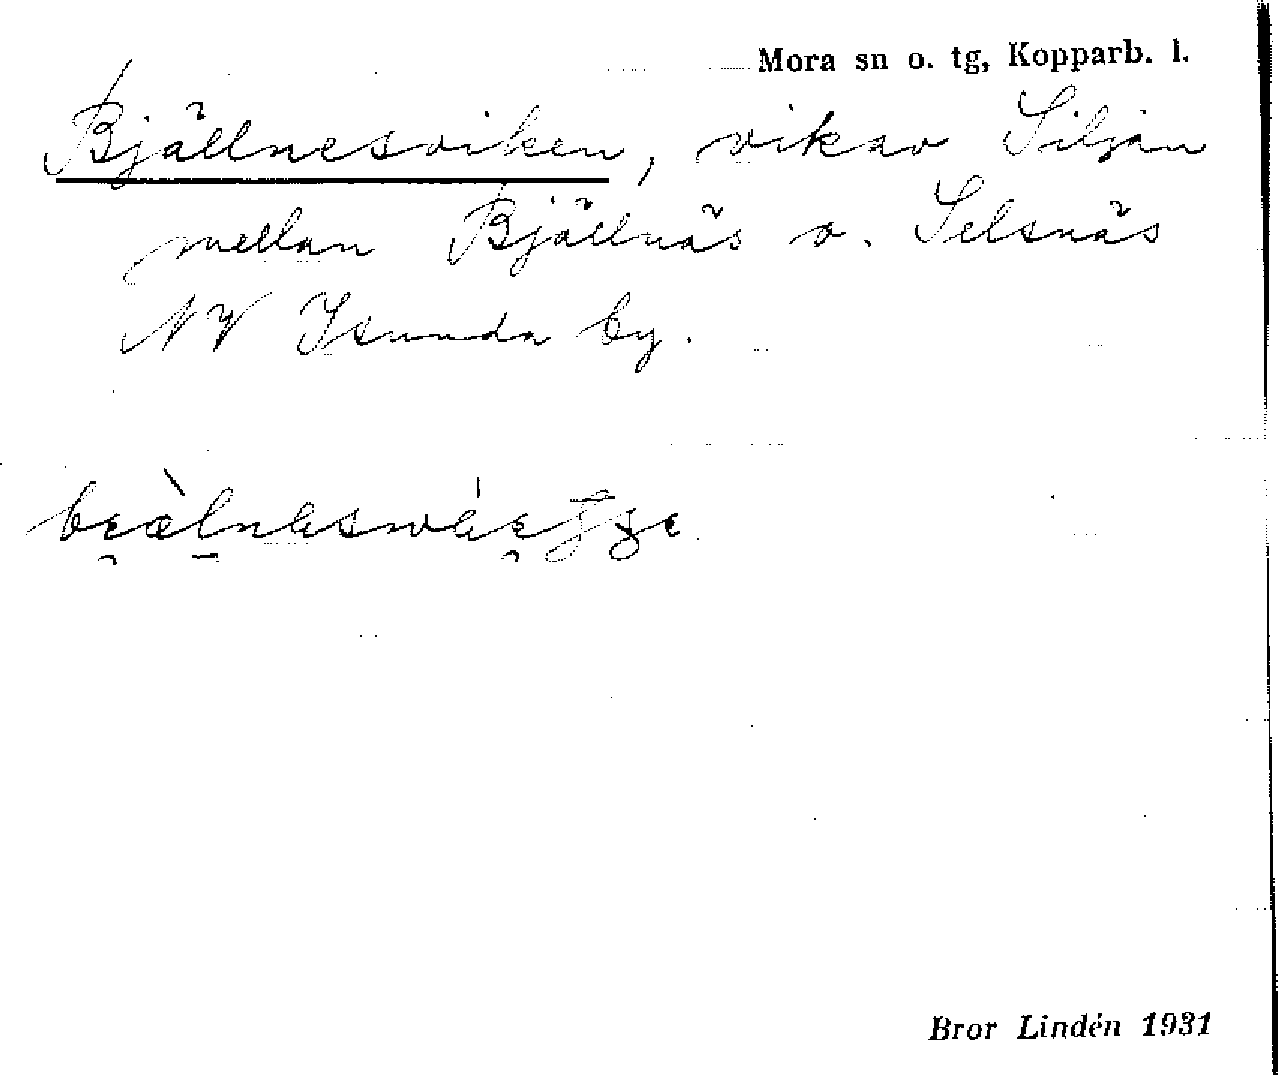 Mora sn o. tg, Kopparb. l.
Bjällnesviken, vik av Siljan
mellan Bjällnäs o. Selsnäs
NV Isunda by.
Bror Lindén 1931